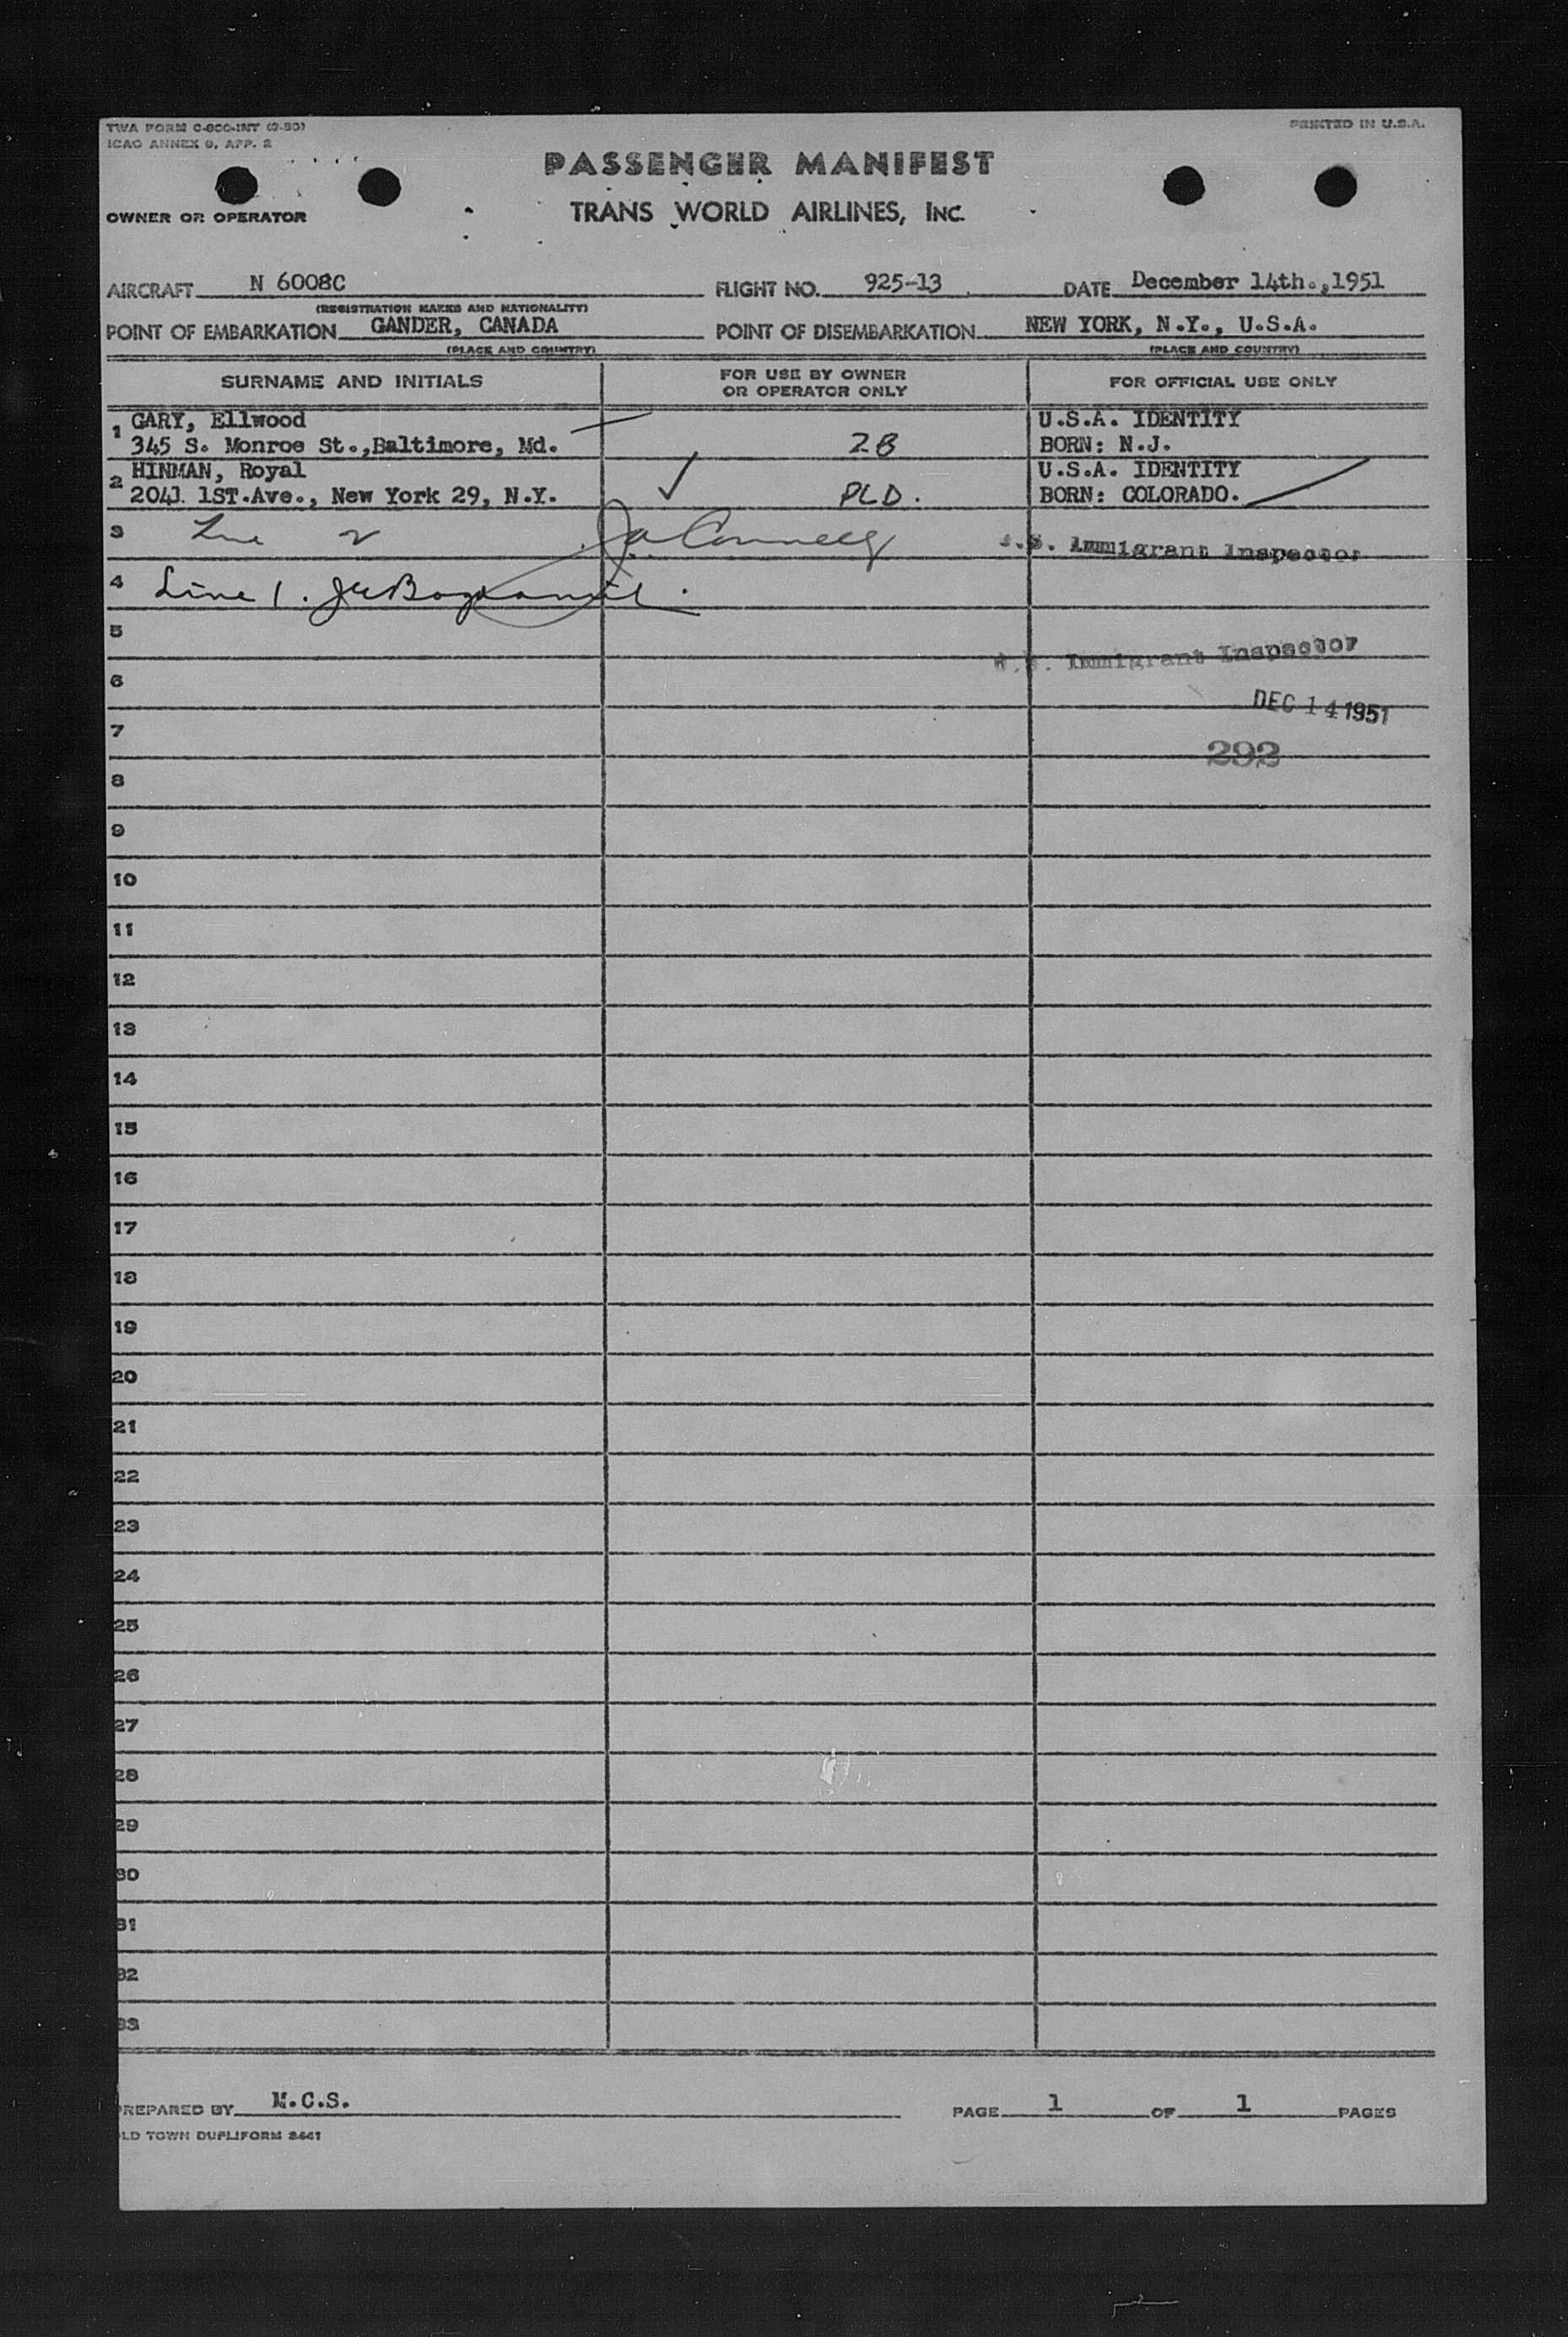 TWA FORM C-800-INT (9-50)
PRINTED IN U.S.A.
ICAO ANNEX 9, APP. 2
PASSENGER MANIFEST
OWNER OR OPERATOR
TRANS WORLD AIRLINES, INC.
AIRCRAFT N 6008C FLIGHT NO. 925-13 DATE December 14th.,1951
(REGISTRATION MARKS AND NATIONALITY)
POINT OF EMBARKATION GANDER, CANADA POINT OF DISEMBARKATION NEW YORK, N.Y., U.S.A.
(PLACE AND COUNTRY) (PLACE AND COUNTRY)
SURNAME AND INITIALS
FOR USE BY OWNER
OR OPERATOR ONLY
FOR OFFICIAL USE ONLY
1 GARY, Ellwood U.S.A. IDENTITY
345 S. Monroe St.,Baltimore, Md. 2B BORN: N.J.
2 HINMAN, Royal U.S.A. IDENTITY
2041 1ST.Ave., New York 29, N.Y. PLD. BORN: COLORADO.
3 Line 2 U.S. Immigrant Inspector
4 Line 1.
5
U.S. Immigrant Inspector
6
DEC 14 1951
7
292
8
9
10
11
12
13
14
15
16
17
18
19
20
21
22
23
24
25
26
27
28
29
30
31
32
33
PREPARED BY M.C.S. PAGE 1 OF 1 PAGES
OLD TOWN DUPLIFORM 8441